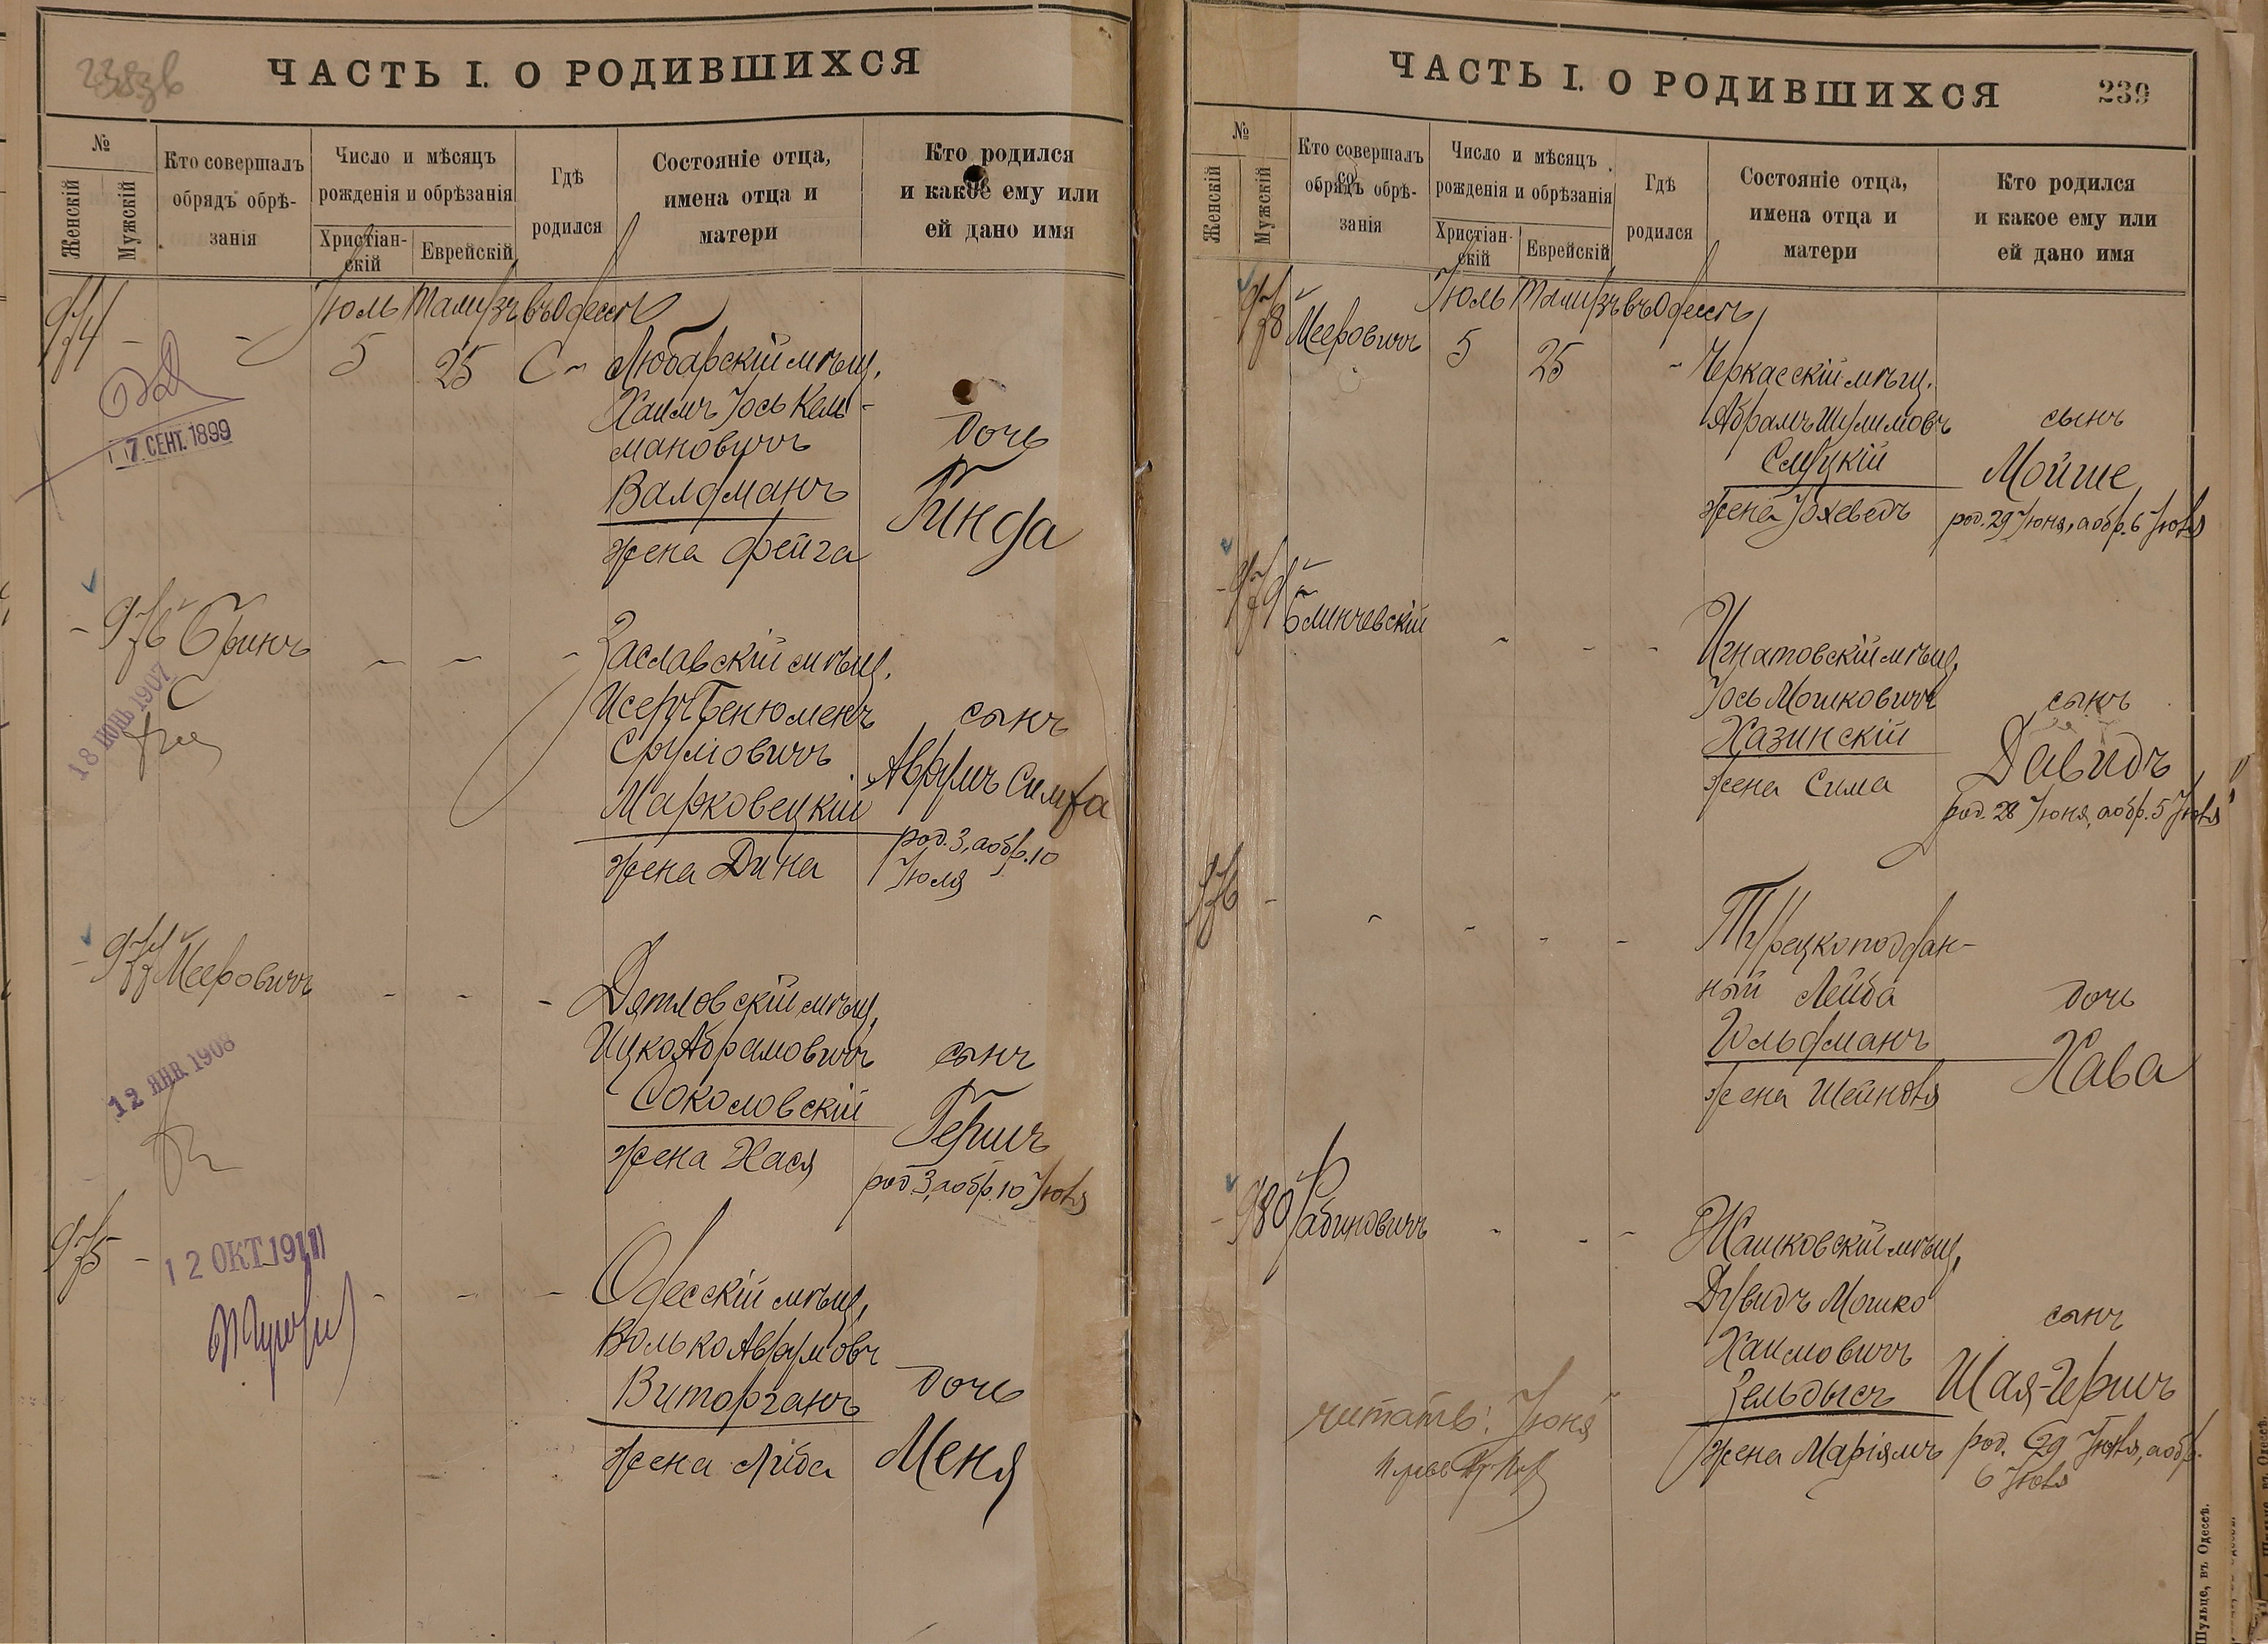 238 об
ЧАСТЬ I. О РОДИВШИХСЯ
№
Женскій
Мужскій
Кто совершалъ
обрядъ обрѣ-
занія
Число и мѣсяцъ
рожденія и обрѣзанія
Христіан-
скій
Еврейскій
Гдѣ
родился
Состояніе отца,
имена отца и
матери
Кто родился
и какое ему или
ей дано имя
974 - - Іюль Тамузъ въ Одессѣ
5 25 Любарскій мѣщ.
Хаимъ Іось Кель-
мановичъ
Валдманъ
жена Фейга
дочь
Гинда
17 СЕНТ. 1899
- 976 Бринъ - - - Заславскій мѣщ.
Исеръ Бенюменъ
Сруліовичъ
Марковецкій
жена Дина
сынъ
Аврумъ Симха
род. 3, а обр. 10
Іюля
18 ІЮНЬ 1907
- 977 Мееровичъ - - - Дятловскій мѣщ.
Ицко Абрамовичъ
Соколовскій
жена Хася
сынъ
Гершъ
род. 3, а обр. 10 Іюля
12 ЯНВ. 1908
975 - - - - Одесскій мѣщ.
Волько Аврумовъ
Виторганъ
жена Ліба
дочь
Меня
12 ОКТ. 1911
ЧАСТЬ I. О РОДИВШИХСЯ
239
№
Женскій
Мужскій
Кто совершалъ
обрядъ обрѣ-
занія
Число и мѣсяцъ
рожденія и обрѣзанія
Христіан-
скій
Еврейскій
Гдѣ
родился
Состояніе отца,
имена отца и
матери
Кто родился
и какое ему или
ей дано имя
978 Мееровичъ Іюль Тамузъ въ Одессѣ
5 25 - Черкасскій мѣщ.
Абрамъ Шулимовъ
Слуцкій
жена Іохеведъ
сынъ
Мойше
род. 29 Іюня, а обр. 6 Іюля
- 979 Блинчевскій - - - Игнатовскій мѣщ.
Іось Мошковичъ
Хазинскій
жена Сима
сынъ
Давидъ
род. 28 Іюня, а обр. 5 Іюля
976 - - - - - Турецкоподдан-
ный Лейба
Гольдманъ
жена Шейндля
дочь
Хава
- 980 Рабиновичъ - - - Жашковскій мѣщ.
Дувидъ Мошко
Хаимовичъ
Зельдысъ
жена Маріямъ
сынъ
Шая-Гершъ
род. 29 Іюля, а обр.
6 Іюля
читать: "Іюня"
Шульце, въ Одессѣ.